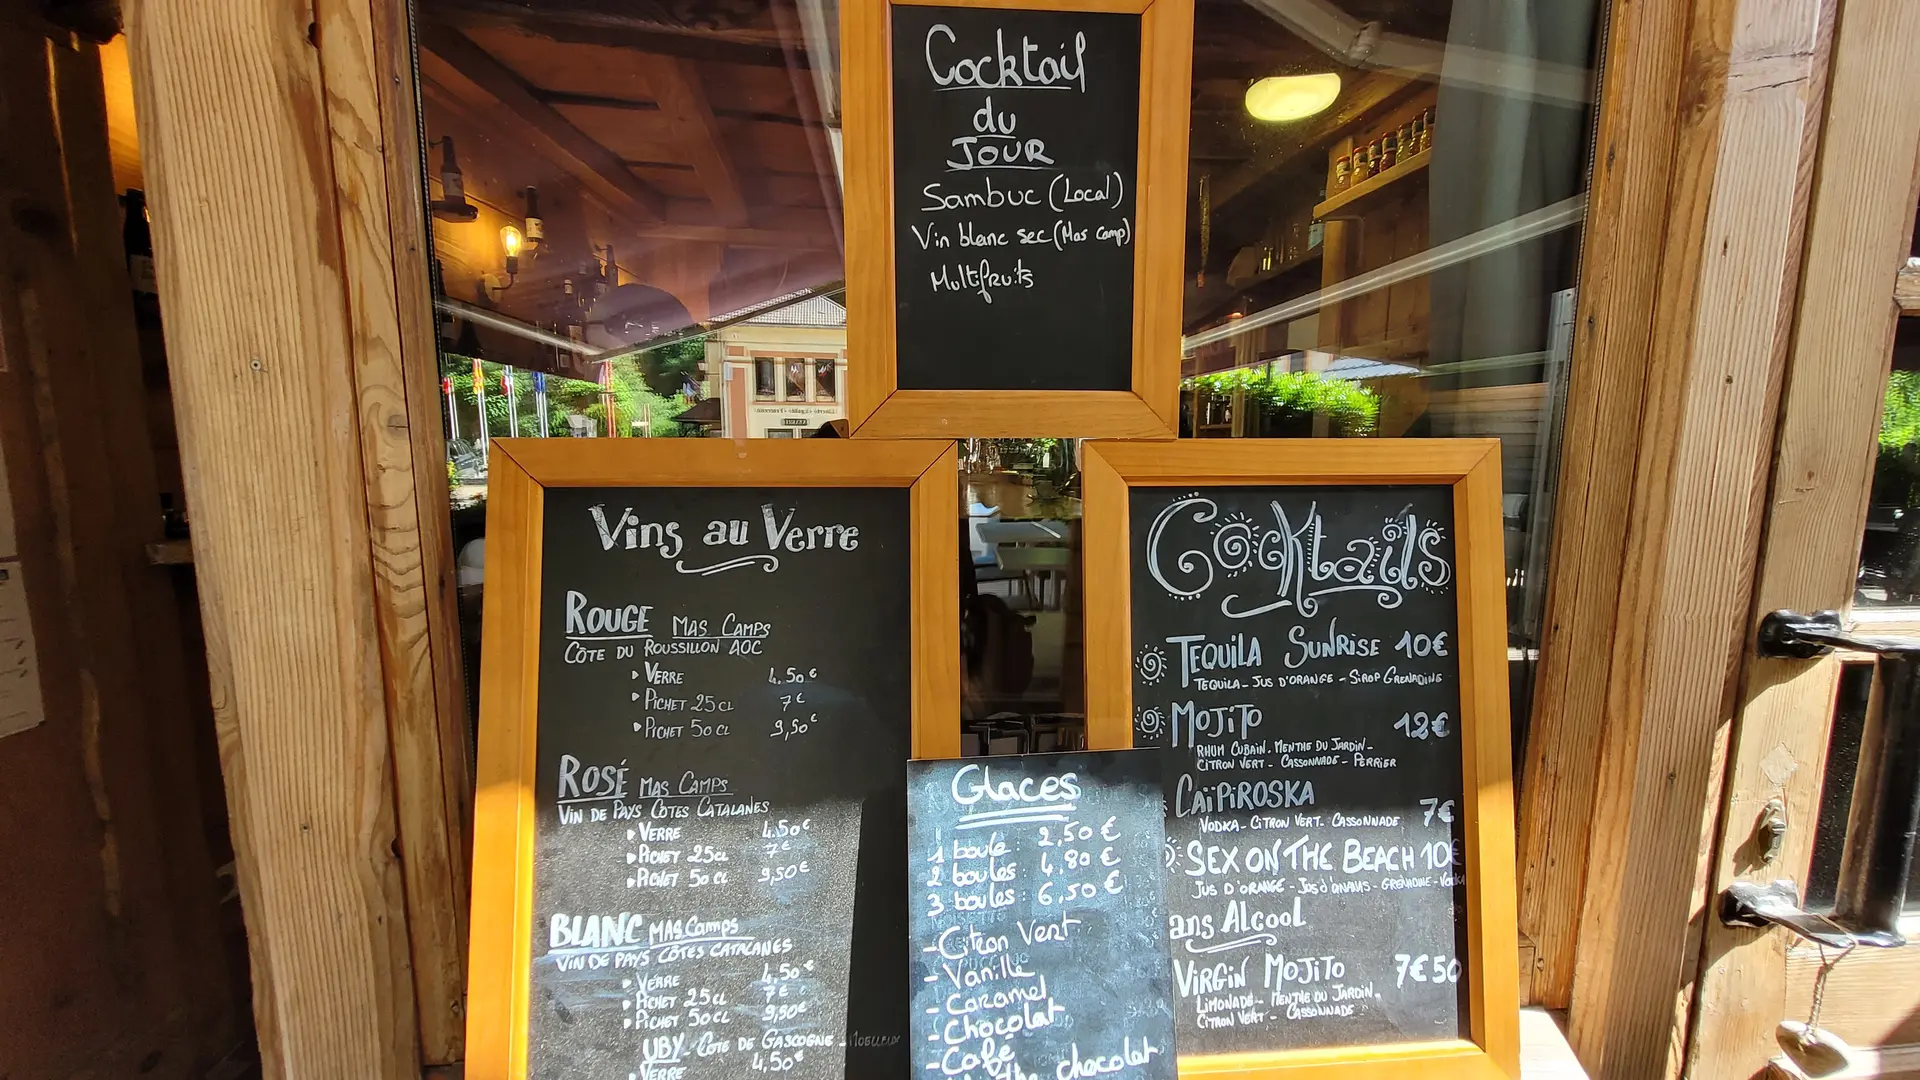 Cocktail
du
JOUR
Sambuc (Local)
Vin blanc sec (Mas Camp)
Multifruits
Vins au Verre
ROUGE MAS CAMPS
CÔTE DU ROUSSILLON AOC
VERRE 4.50€
PICHET 25CL 7€
PICHET 50 CL 9,50€
ROSÉ MAS CAMPS
VIN DE PAYS CÔTES CATALANES
VERRE 4.50€
PICHET 25CL 7€
PICHET 50 CL 9,50€
BLANC MAS Camps
VIN DE PAYS CÔTES CATALANES
VERRE 4,50€
PICHET 25CL 7€
PICHET 50CL 9,50€
UBY - CÔTE DE GASCOGNE - MOELLEUX
VERRE 4,50€
Glaces
1 boule: 2,50 €
2 boules: 4,80 €
3 boules: 6,50 €
- Citron Vert
- Vanille
- Caramel
- Chocolat
- Café
chocolat
Cocktails
TEQUILA SUNRISE 10€
TEQUILA - JUS D'ORANGE - SIROP GRENADINE
MOJITO 12€
RHUM CUBAIN - MENTHE DU JARDIN -
CITRON VERT - CASSONNADE - PERRIER
CAÏPIROSKA 7€
VODKA - CITRON VERT - CASSONNADE
SEX ON THE BEACH 10€
JUS D'ORANGE - JUS d'ANANAS - GRENADINE - VODKA
ans ALCOOL
VIRGIN MOJITO 7€50
LIMONADE - MENTHE DU JARDIN -
CITRON VERT - CASSONNADE